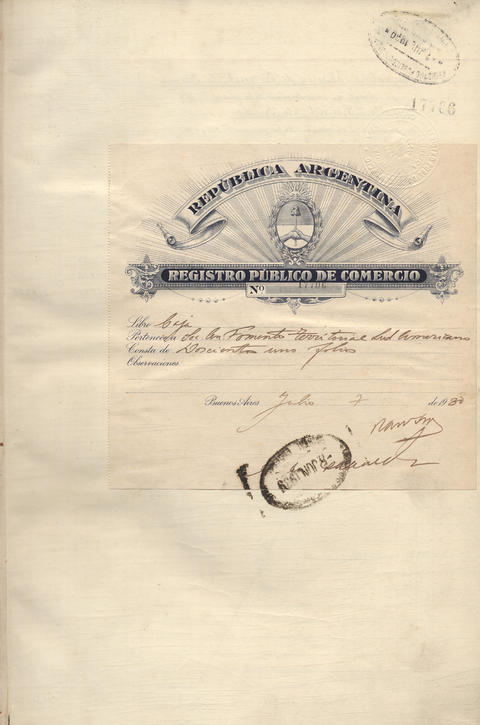 17766
REPÚBLICA ARGENTINA
REGISTRO PÚBLICO DE COMERCIO
Nº 17766
Libro Caja
Pertenece a Soc An Fomento Territorial Sud Americano
Consta de Doscientos uno folios
Observaciones
Buenos Aires Julio 7 de 1930